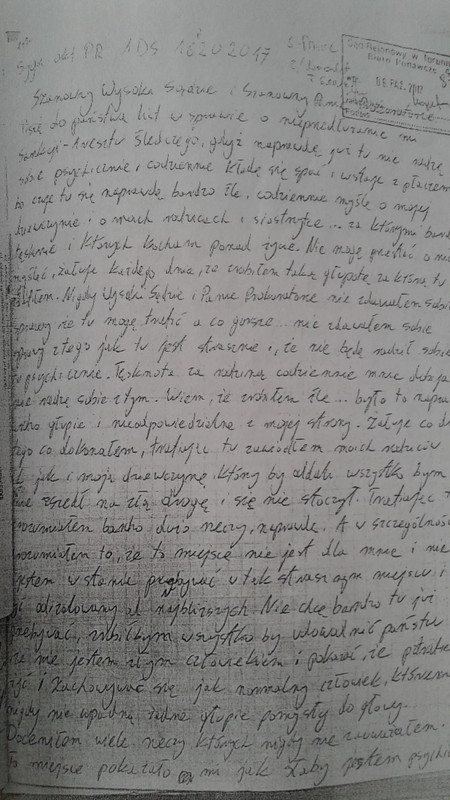 Sygn. akt PR 1 DS 1620.2017
Sąd Rejonowy w Toruniu
Biuro Podawcze
Szanowny Wysoki Sądzie i Szanowny Panie Prokuratorze
Piszę do państwa list w sprawie o nieprzedłużanie mi
Sankcji - Aresztu Śledczego, gdyż naprawdę już tu nie radzę
sobie psychicznie, codziennie kładę się spać i wstaję z płaczem
bo czuję tu się naprawdę bardzo źle, codziennie myślę o mojej
dziewczynie i o moich rodzicach i siostrzyczce... za którymi bardzo
tęsknie i których kocham ponad życie. Nie mogę przestać o nich
myśleć, żałuję każdego dnia, że zrobiłem taką głupotę za którą tu
trafiłem. Nigdy Wysoki Sądzie i Panie Prokuratorze nie zdawałem sobie
sprawy że tu mogę trafić a co gorsze... nie zdawałem sobie
sprawy z tego jak tu jest strasznie i, że nie będę radził sobie
tu psychicznie. Tęsknota za rodziną codziennie mnie dobija
nie radzę sobie z tym. Wiem, że zrobiłem źle... było to naprawdę
bardzo głupie i nieodpowiedzialne z mojej strony. Żałuję co do
tego co dokonałem, trafiając tu zawiodłem moich rodziców
jak i moją dziewczynę, który by oddali wszystko bym
nie zszedł na złą drogę i się nie stoczył. Trafiając tu
zrozumiałem bardzo dużo rzeczy, naprawdę. A w szczególności
zrozumiałem to, że to miejsce nie jest dla mnie i nie
jestem w stanie przebywać w tak strasznym miejscu i
być odizolowany od najbliższych. Nie chcę bardzo tu już
przebywać, zrobiłbym wszystko by udowodnić państwu
że nie jestem złym człowiekiem i pokazać, że potrafię
żyć i zachowywać się jak normalny człowiek, któremu
nigdy nie wpadną żadne głupie pomysły do głowy.
Doceniłem wiele rzeczy których nigdy nie zauważałem.
To miejsce pokazało mi jak słaby jestem psychicznie